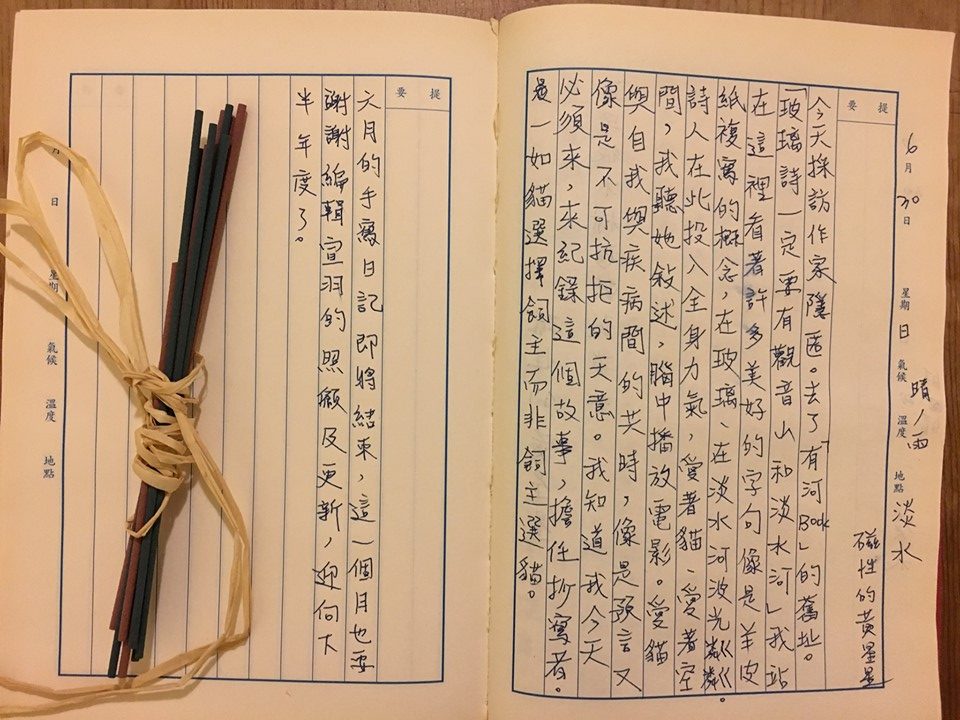 6月30日 星期日 氣候 晴/雨 溫度 地點 淡水
磁性的黃星星
提要
今天採訪作家隱匿。去了「有河Book」的舊址。
「玻璃詩一定要有觀音山和淡水河」我站
在這裡看著許多美好的字句像是羊皮
紙複寫的概念,在玻璃、在淡水河波光粼粼。
詩人在此投入全身力氣,愛著貓、愛著空
間,我聽她敘述,腦中播放電影。愛貓
與自我與疾病間的共時,像是預言又
像是不可抗拒的天意。我知道我今天
必須來,來紀錄這個故事,擔任抄寫者。
是一如貓選擇飼主而非飼主選貓。
提要
六月的手寫日記即將結束,這一個月也要
謝謝編輯宣羽的照顧及更新,迎向下
半年度了。
月 日 星期 氣候 溫度 地點